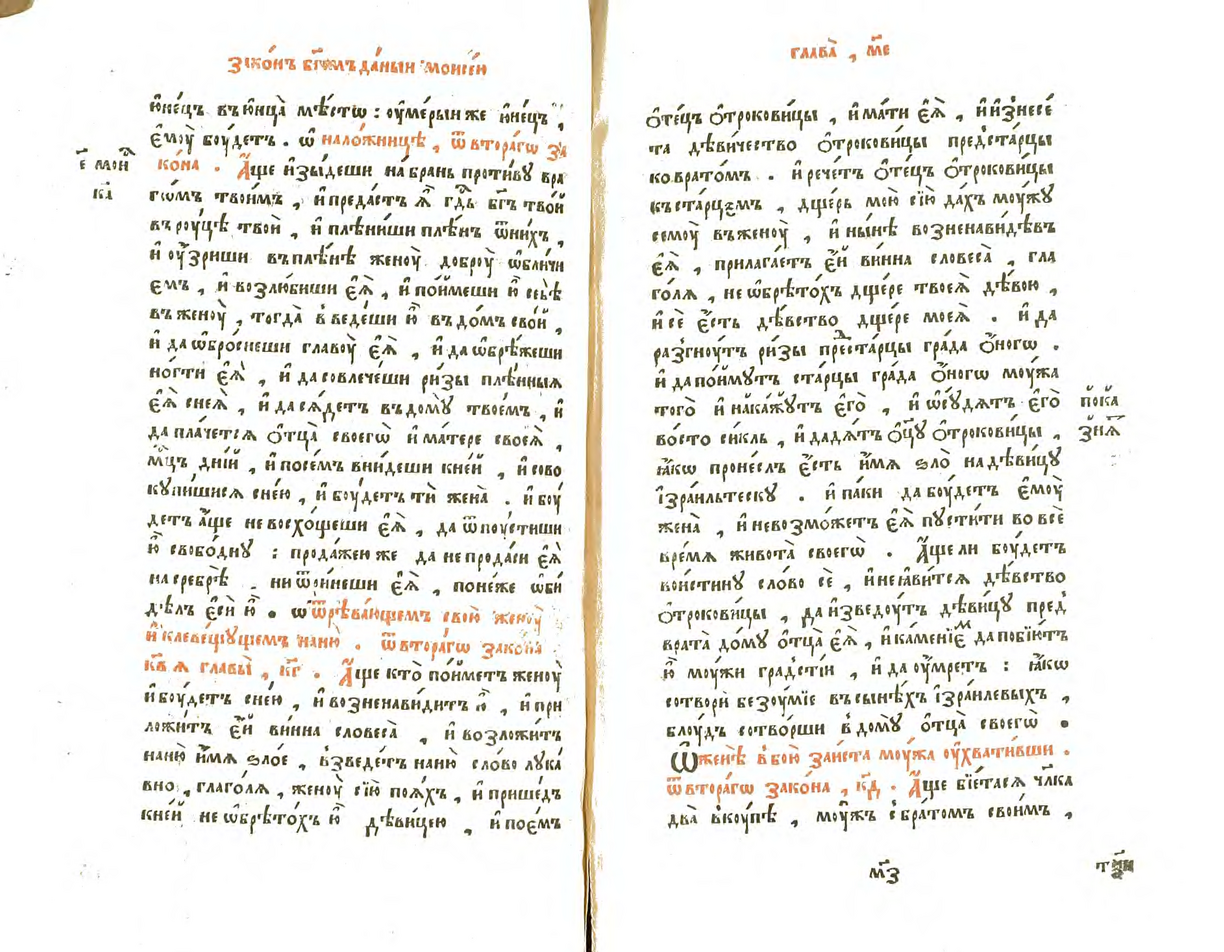 Зако́нъ бг҃омъ да́нный мѡисе́ю
ю҆не́цъ въ ю҆нца̀ мѣ́стѡ : ѹ҆ме́рыи же ю҆не́цъ ,
є҆мѹ̀ бѹ́детъ . ѡ҆ нало́жницѣ , ѿ втора́гѡ за
є҃ мои҆
ко́на . А҆́ще и҆зы́деши на бра́нь проти́вꙋ вра
ка҃
гѡ́мъ твои́мъ , и҆ преда́стъ ѧ҆̀ гдⷭ҇ь бг҃ъ тво́й
въ рѹ́цѣ твои̑ , и҆ плѣни́ши плѣ́нъ ѿ ни́хъ ,
и҆ ѹ҆́зриши въ плѣ́нѣ женѹ̀ добрѹ̀ ѡ҆бли́чи
емъ , и҆ возлю́биши є҆ѧ̀ , и҆ по́ймеши ю҆̀ себѣ̀
въ женѹ̀ , тогда̀ в̾веде́ши ю҆̀ въ до́мъ сво́й ,
и҆ да ѡ҆бро́снеши главѹ̀ є҆ѧ̀ , и҆ да ѡ҆брѣ́жеши
но́гти є҆ѧ̀ , и҆ да совлече́ши ри́зы плѣ́нныѧ
є҆ѧ̀ с неѧ̀ , и҆ да сѧ́детъ въ домꙋ̀ твое́мъ , и҆
да пла́четсѧ ѻ҆тца̀ своегѡ̀ и҆ ма́тере своеѧ̀ ,
мцⷭ҇ъ дні́й , и҆ посе́мъ вни́деши к не́й , и҆ сово
кꙋпи́шисѧ с не́ю , и҆ бѹ́детъ тѝ жена̀ . и҆ бѹ́
детъ а҆́ще не восхо́щеши є҆ѧ̀ , да ѿпѹ́стиши
ю҆̀ свобо́днꙋ : прода́жею же да не прода́си є҆ѧ̀
на сребрѣ̀ . ни ѿри́неши є҆ѧ̀ , поне́же ѡ҆би
дѣ́лъ є҆сѝ ю҆̀ . ѡ҆ ѿрѣва́ющемъ свою̀ женѹ̀
и҆ клеве́щꙋщемъ на ню̀ . ѿ втора́гѡ зако́на
кв҃ ѧ главы̀ , кг҃ . А҆́ще кто̀ по́йметъ женѹ̀
и҆ бѹ́детъ с не́ю , и҆ возненави́дитъ ю҆̀ , и҆ при
ложи́тъ є҆́й ви̑нна словеса̀ , и҆ возложи́тъ
на ню̀ и҆́мѧ ѕло́е , в̾зведе́тъ на ню̀ сло́во лꙋка́
вно , глаго́лѧ , женѹ̀ сїю̀ поѧ́хъ , и҆ прише́дъ
к не́й не ѡ҆брѣто́хъ ю҆̀ дѣви́цею , и҆ пое́мъ
глава̀ , ме҃
ѻ҆те́цъ ѻ҆трокови́цы , и҆ ма́ти є҆ѧ̀ , и҆ и҆знесе́
та дѣ́вичество ѻ҆трокови́цы пред̾ ста́рцы
ко врато́мъ . и҆ рече́тъ ѻ҆те́цъ ѻ҆трокови́цы
къ ста́рцємъ , дще́рь мою̀ сїю̀ да́хъ мѹ́жꙋ
семѹ̀ въ женѹ̀ , и҆ ны́нѣ возненави́дѣвъ
є҆ѧ̀ , прилага́етъ є҆́й ви̑нна словеса̀ , гла
го́лѧ , не ѡ҆брѣто́хъ дще́ре твоеѧ̀ дѣ́вою ,
и҆ сѐ є҆́сть дѣ́вство дще́ре моеѧ̀ . и҆ да
разгнѹ́тъ ри́зы преⷣ ста́рцы гра́да ѻ҆́ногѡ .
и҆ да по́ймꙋтъ ста́рцы гра́да ѻ҆́ногѡ мѹ́жа
того̀ и҆ нака́жꙋтъ є҆го̀ , и҆ ѡ҆сꙋ́дѧтъ є҆го̀
пока
во́ сто си́кль , и҆ дадѧ́тъ ѻ҆ц҃ꙋ̀ ѻ҆трокови́цы ,
ꙗ҆́кѡ проне́слъ є҆́сть и҆́мѧ ѕло̀ на дѣви́цꙋ
і҆зра́ильтескꙋ . и҆ па́ки да бѹ́детъ є҆мѹ̀
жена̀ , и҆ не возмо́жетъ є҆ѧ̀ пꙋсти́ти во всѐ
вре́мѧ живота̀ своегѡ̀ . А҆́ще ли бѹ́детъ
вои́стинꙋ сло́во сѐ , и҆ не ꙗ҆ви́тсѧ дѣ́вство
ѻ҆трокови́цы , да и҆зведѹ́тъ дѣви́цꙋ пред̾
врата̀ до́мꙋ ѻ҆тца̀ є҆ѧ̀ , и҆ ка́менїеⷨ да побїю́тъ
ю҆̀ мѹ́жи гра́дстїи , и҆ да ѹ҆́мретъ : ꙗ҆́кѡ
сотворѝ безѹ́мїе въ сынѣ́хъ і҆зра́илевыхъ ,
блѹ́дъ сотво́рши в̾ домꙋ̀ ѻ҆тца̀ своегѡ̀ .
Ѡ҆ женѣ̀ в̾ бою̀ за и́ста мѹ́жа ѹ҆хвати́вши .
ѿ втора́гѡ зако́на , кд҃ . А҆́ще бїе́тасѧ чл҃ка
два̀ вкѹ́пѣ , мѹ́жъ с̾ бра́томъ свои́мъ ,
мз҃